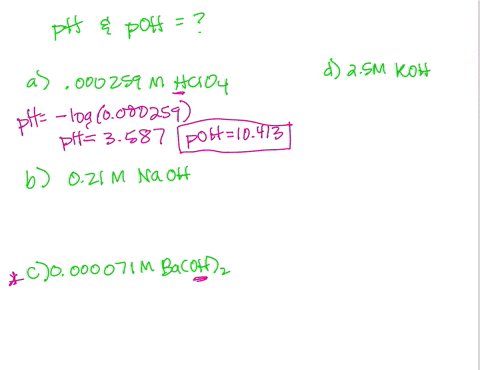 pH & pOH = ?
a) .000259 M HClO4
pH= -log(0.000259)
pH= 3.587 pOH=10.413
b) 0.21 M NaOH
* c) 0.000071 M Ba(OH)2
d) 2.5M KOH